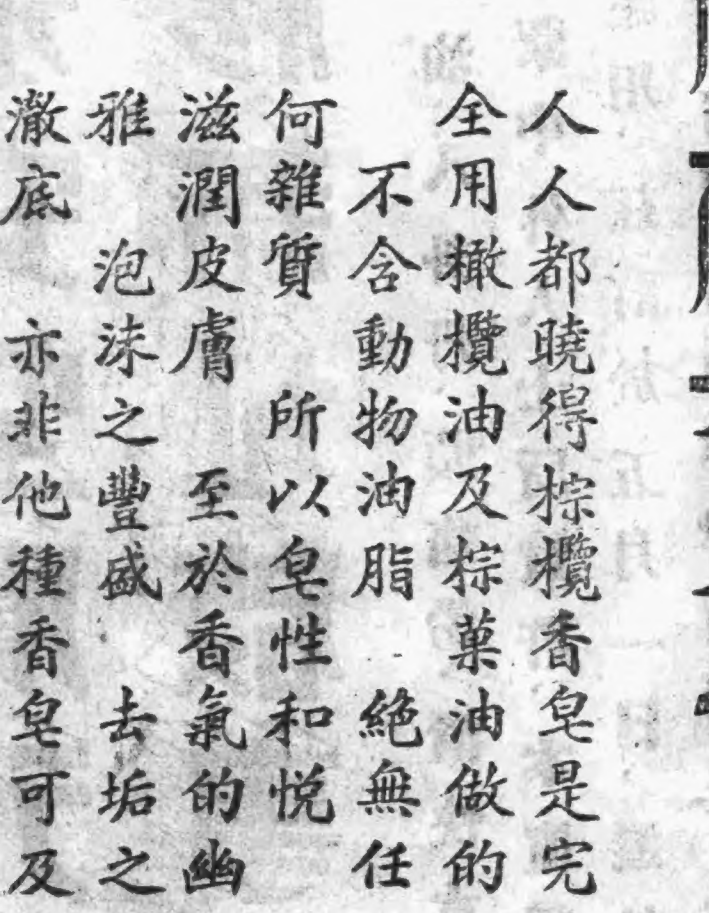 人人都曉得棕欖香皂是完
全用橄欖油及棕菓油做的
不含動物油脂　絕無任
何雜質　所以皂性和悅
滋潤皮膚　至於香氣的幽
雅　泡沫之豐盛　去垢之
澈底　亦非他種香皂可及